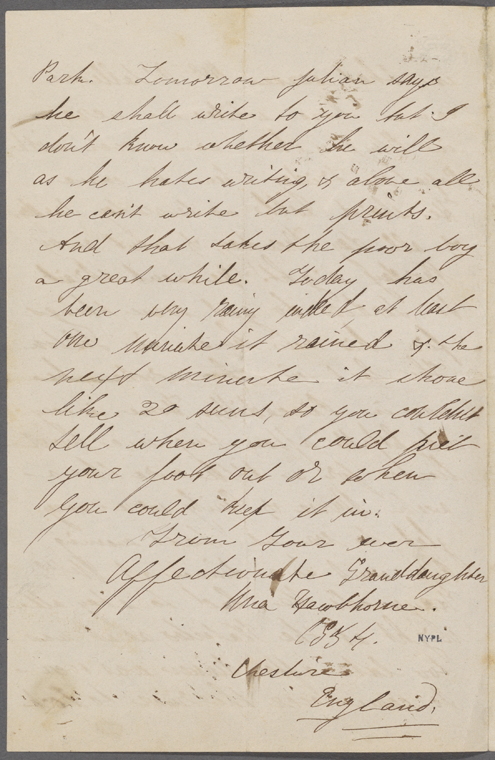 Park. Tomorrow Julian says
he shall write to you but I
don't know whether he will
as he hates writing, & above all
he can't write but prints.
And that takes the poor boy
a great while. Today has
been very rainy indeed at least
one minute it rained & the
next minute it shone
like 20 suns, so you couldn't
tell when you could put
your foot out or when
you could keep it in.
From your ever
Affectionate Granddaughter
Una Hawthorne.
1854.
NYPL
Cheshire
England.